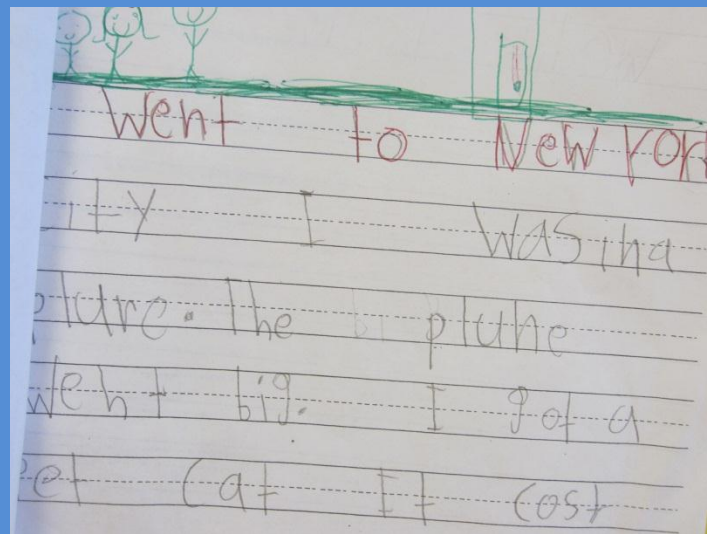 Went to New York
City I was ina
plure. The plune
went big. I got a
Pet Cat It Cost